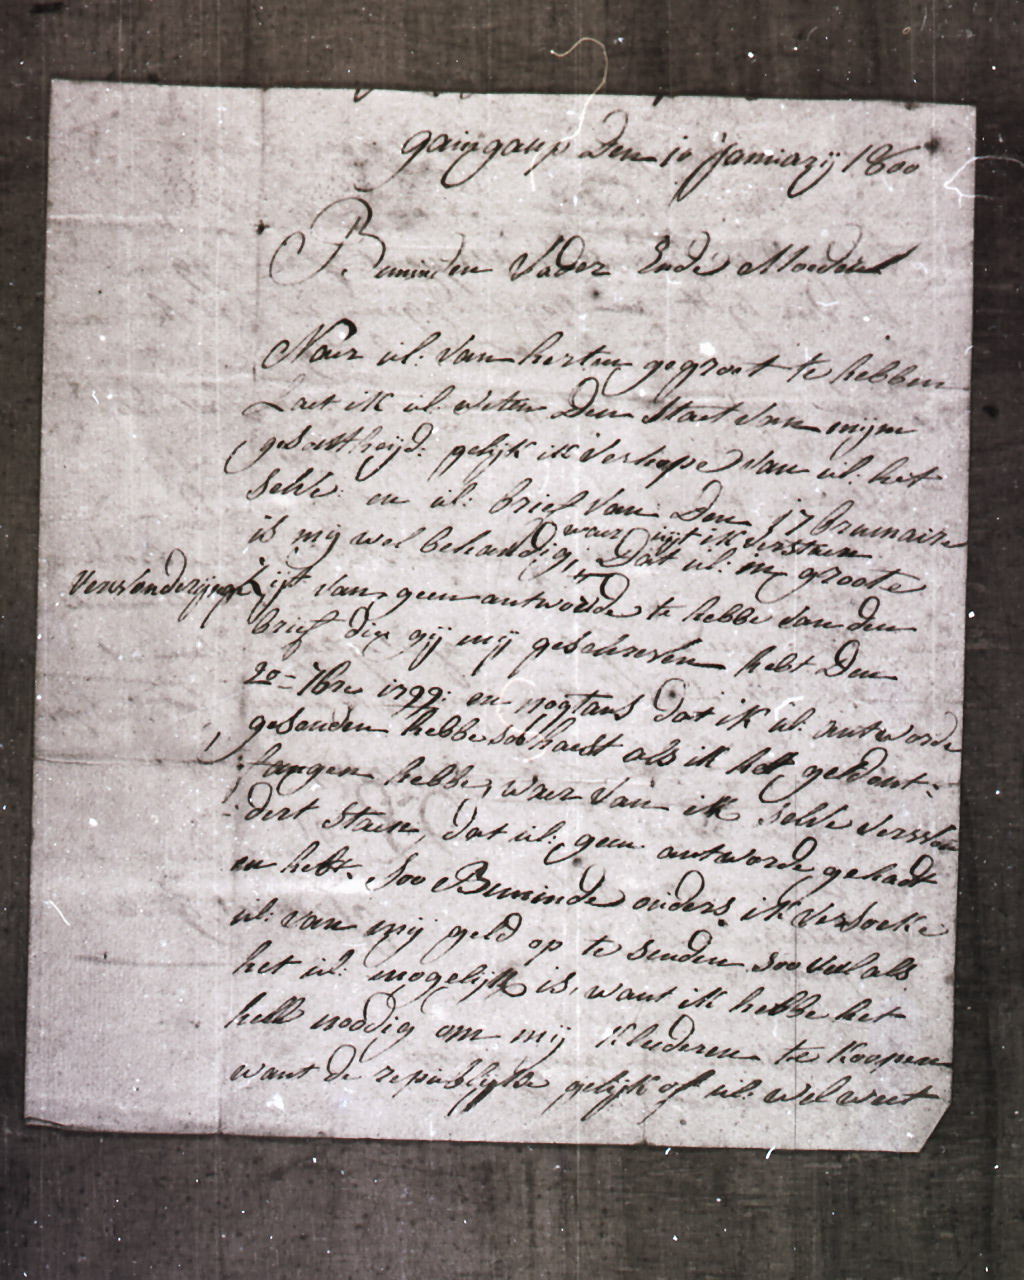 gaingamp Den 10 januarij 1800
Beminden Vader Ende Moeder
Naer ul: van herten gegroet te hebben
Laet ik ul: weten Den staet van mijne
gesontheijd: gelijk ik verhope van ul: het
selve: en ul: brief van Den 17 brumaire
is mij wel behandig, waer uijt ik verstaen Dat ul: in groote
verwonderijnge
Zijt van geen antworde te hebbe van den
brief die gij mij geschreven hebt Den
20 = 7bre 1799: en nogtans dat ik ul: antworde
gesonden hebbe soo haest als ik het geld ont=
:fangen hebbe, waer van ik selve verwon
:dert staen, dat ul: geen antworde gehadt
en hebt. Soo Beminde ouders, ik versoeke
ul: van mij geld op te senden soo veel als
het ul: mogelijk is, want ik hebbe het
heel noodig om mij kleederen te koopen
want de republijke gelijk of ul: wel weet